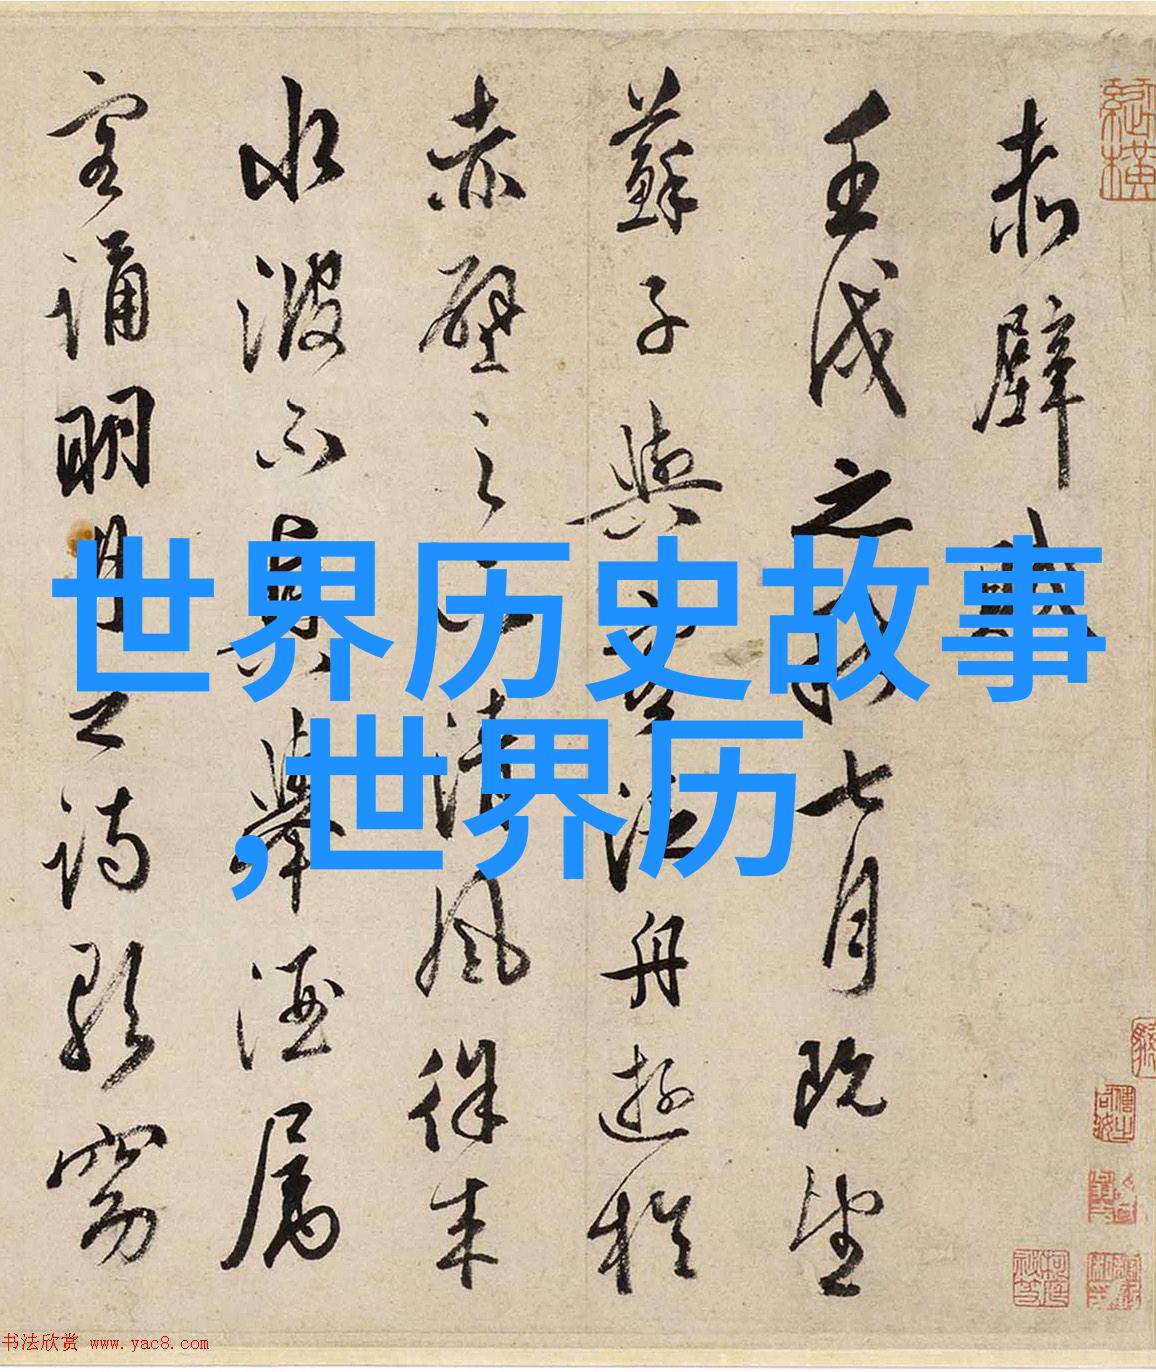 赤壁賦
壬戌之秋七月既望
蘇子與客泛舟遊於
赤壁之下清風徐来
水波不興舉酒属
客誦明月之詩歌窈
世界历史故事
,世界历
书法欣赏 www.yac8.com